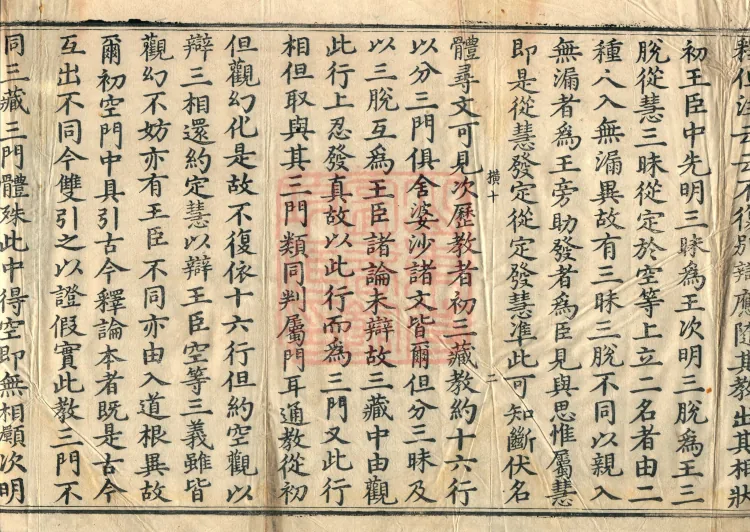 不復別辯應隨其教出其相狀
初王臣中先明三昧爲王次明三脫爲王三
脫從慧三昧從定於空等上立二名者由二
種入入無漏異故有三昧三脫不同以親入
無漏者爲王旁助發者爲臣見與思惟屬慧
即是從慧發定從定發慧準此可知斷伏名
橫十
二
體尋文可見次歷教者初三藏教約十六行
以分三門俱舍婆沙諸文皆爾但分三昧及
以三脫互爲王臣諸論未辯故三藏中由觀
此行上忍發真故以此行而爲三門又此行
相但取與其三門類同判屬門耳通教從初
但觀幻化是故不復依十六行但約空觀以
辯三相還約定慧以辯王臣空等三義雖皆
觀幻不妨亦有王臣不同亦由入道根異故
爾初空門中具引古今釋論本者既是古今
互出不同今雙引之以證假實此教三門不
同三藏三門體殊此中得空即無相願次明